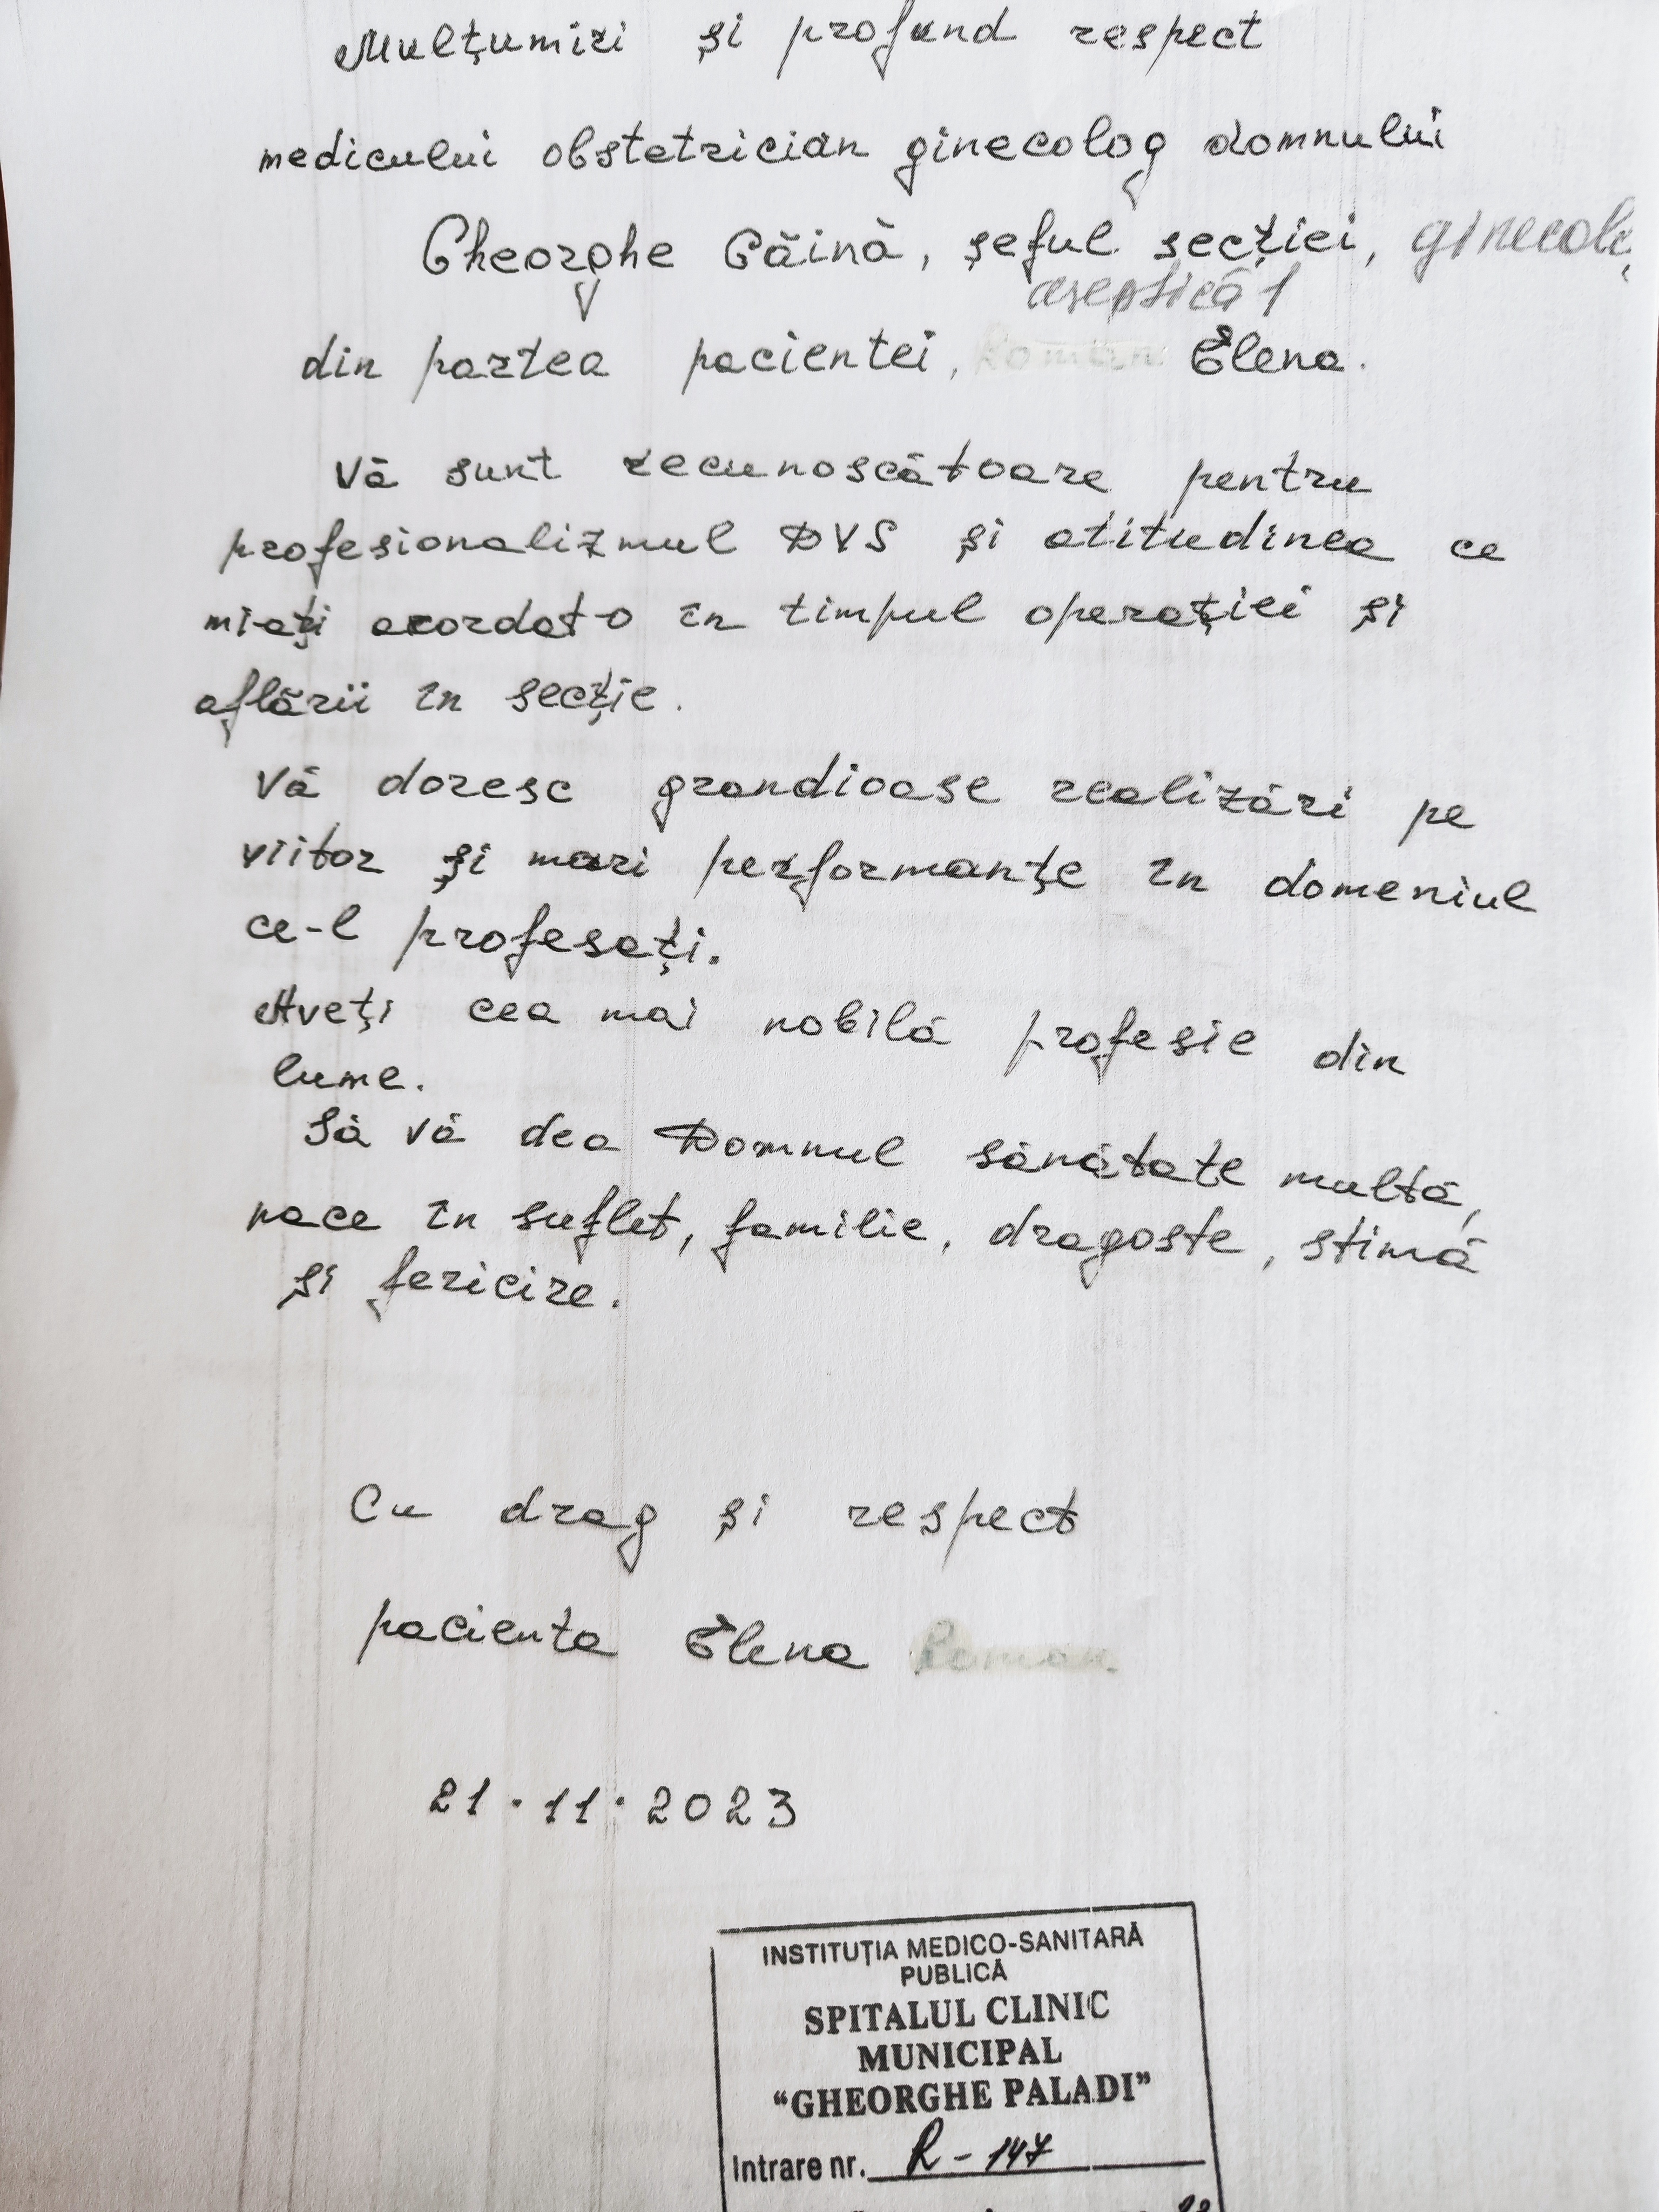 Mulțumiri și profund respect
medicului obstetrician ginecolog domnului
Gheorghe Găină, șeful secției,
aseptică 1
din partea pacientei, Elena.
Vă sunt recunoscătoare pentru
profesionalizmul DVS și atitudinea ce
mi-ați acordat-o în timpul operației și
aflării în secție.
Vă doresc grandioase realizări pe
viitor și mari performanțe în domeniul
ce-l profesați.
Aveți cea mai nobilă profesie din
lume.
Să vă dea Domnul sănătate multă,
pace în suflet, familie, dragoste, stimă
și fericire.
Cu drag și respect
pacienta Elena
21.11.2023
INSTITUȚIA MEDICO-SANITARĂ
PUBLICĂ
SPITALUL CLINIC
MUNICIPAL
“GHEORGHE PALADI”
Intrare nr. R-147